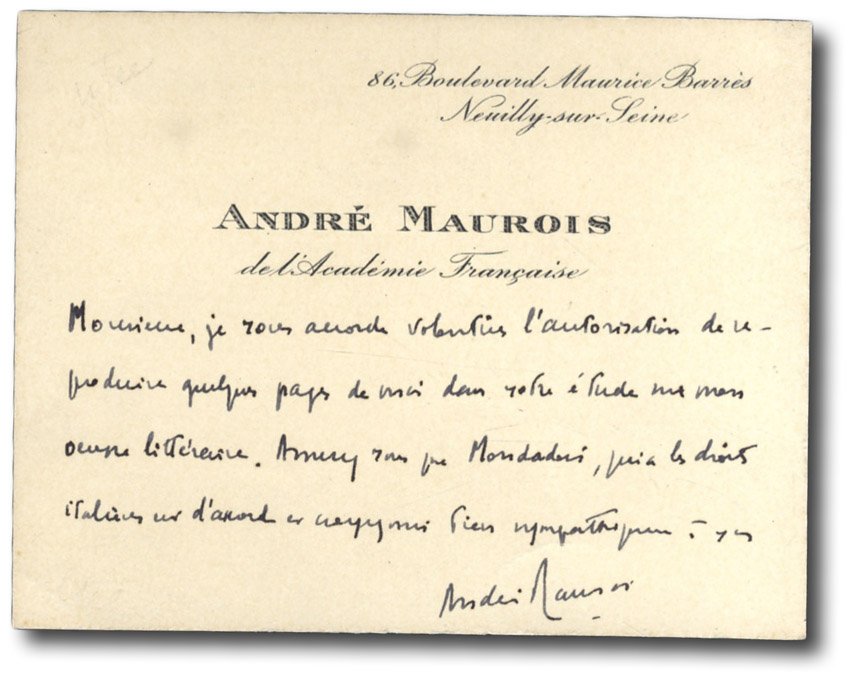 86, Boulevard Maurice Barrès
Neuilly-sur-Seine
ANDRÉ MAUROIS
de l'Académie Française
Monsieur, je vous accorde volontiers l'autorisation de re-
produire quelques pages de moi dans votre étude sur mon
oeuvre littéraire. Assurez vous que Mondadori, qui a les droits
italiens est d'accord et croyez moi bien sympathiquement à vous
André Maurois